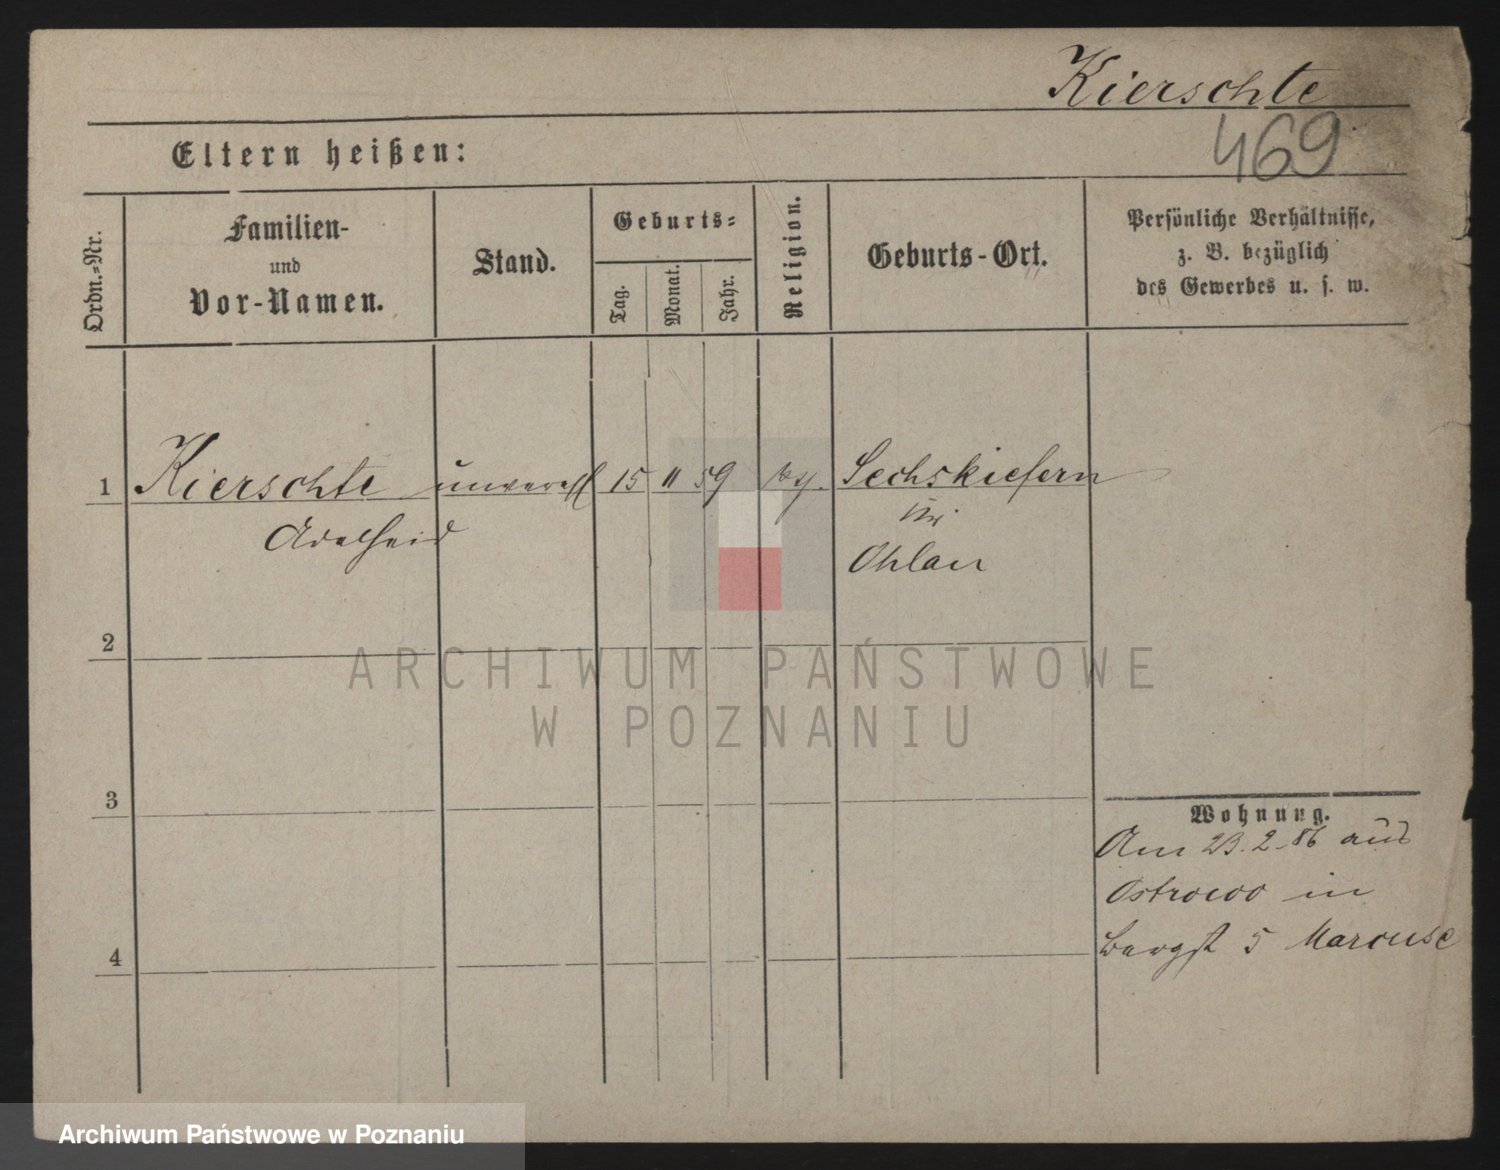 Kierschte
469
Eltern heißen:
Ordn.=Nr.
Familien-
und
Vor-Namen.
Stand.
Geburts=
Tag.
Monat.
Jahr.
Religion.
Geburts-Ort.
Persönliche Verhältnisse,
z. B. bezüglich
des Gewerbes u. s. w.
1 Kierschte unvereh 15 11 59 Sechskiefern
Adelheid
Ohlau
2
ARCHIWUM PAŃSTWOWE
W POZNANIU
3
Wohnung.
Am 23.2.86 aus
Ostrowo in
Bergst 5 Marcuse
4
Archiwum Państwowe w Poznaniu